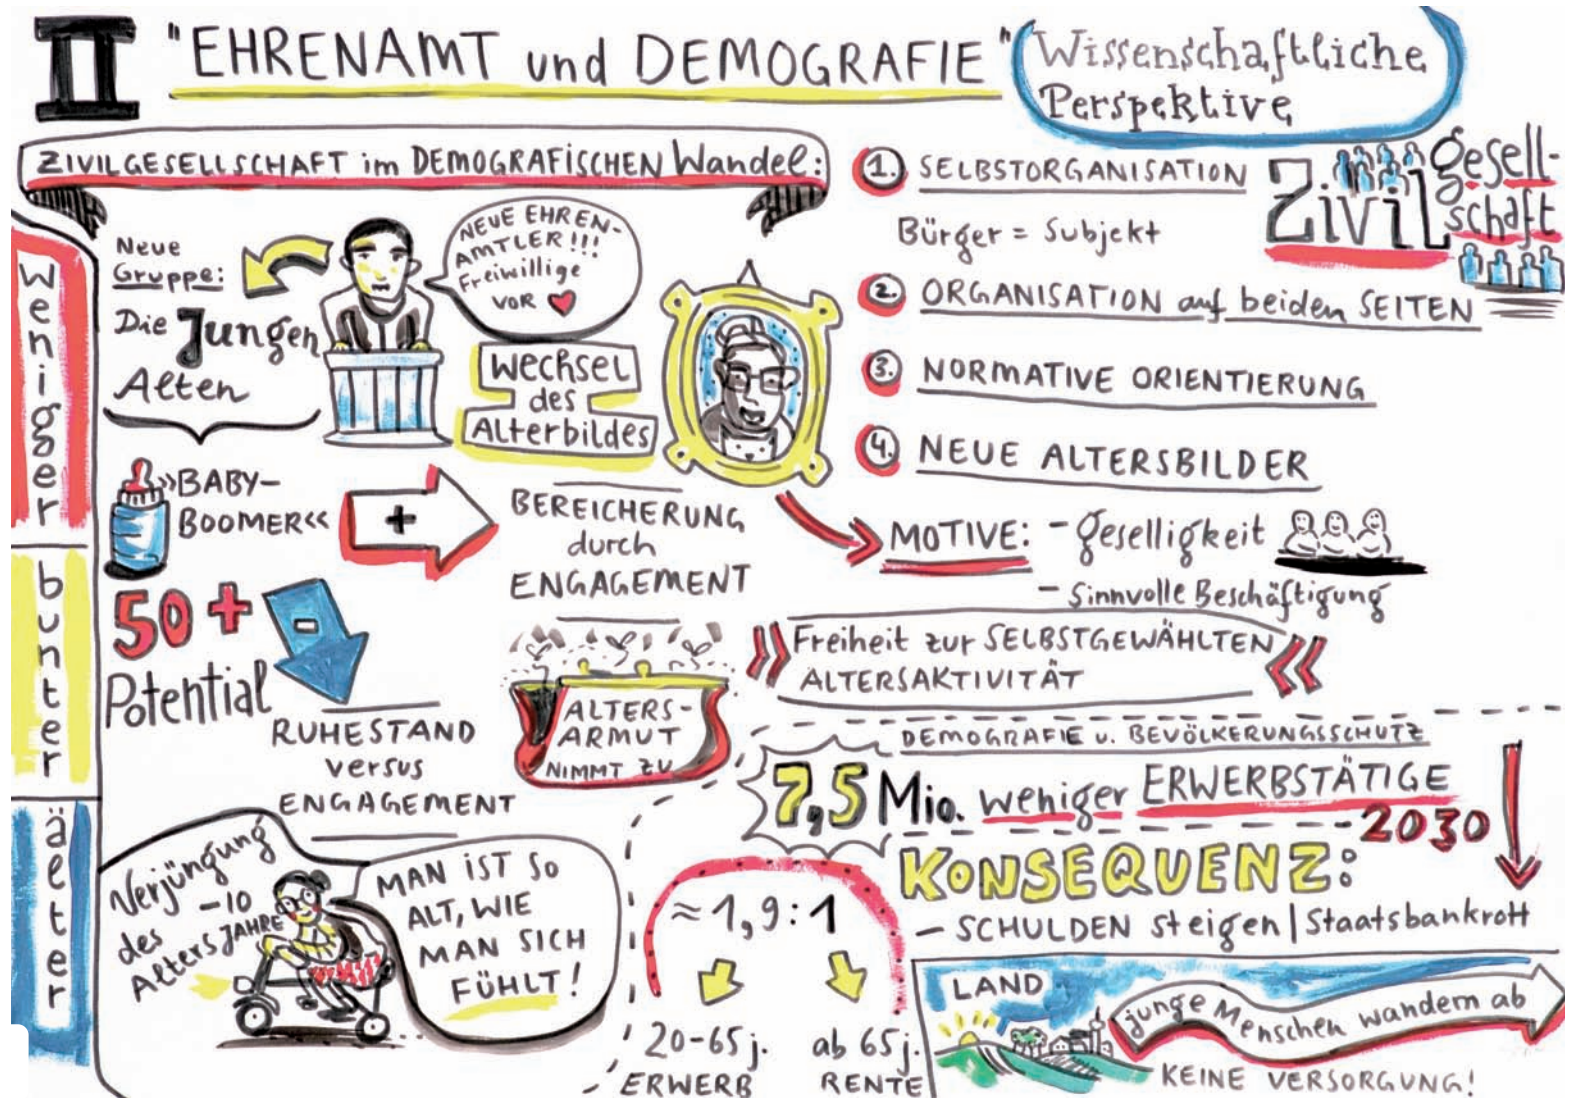 II "EHRENAMT und DEMOGRAFIE"
Wissenschaftliche
Perspektive
ZIVILGESELLSCHAFT im DEMOGRAFISCHEN Wandel:
weniger
bunter
älter
Neue
Gruppe:
Die Jungen
Alten
NEUE EHREN-
AMTLER!!!
Freiwillige
VOR
Wechsel
des
Alterbildes
»BABY-
BOOMER«
+
50+
Potential
-
BEREICHERUNG
durch
ENGAGEMENT
RUHESTAND
versus
ENGAGEMENT
ALTERS-
ARMUT
NIMMT ZU
Verjüngung
-10
des
Alters JAHRE
MAN IST SO
ALT, WIE
MAN SICH
FÜHLT!
1. SELBSTORGANISATION
Bürger = Subjekt
Zivil
gesell-
schaft
2. ORGANISATION auf beiden SEITEN
3. NORMATIVE ORIENTIERUNG
4. NEUE ALTERSBILDER
MOTIVE: - geselligkeit
- Sinnvolle Beschäftigung
»Freiheit zur SELBSTGEWÄHLTEN
ALTERSAKTIVITÄT«
DEMOGRAFIE u. BEVÖLKERUNGSSCHUTZ
7,5 Mio. weniger ERWERBSTÄTIGE
2030
KONSEQUENZ:
- SCHULDEN steigen | Staatsbankrott
≈ 1,9 : 1
20-65 j.
ERWERB
ab 65 j.
RENTE
LAND
junge Menschen wandern ab
KEINE VERSORGUNG!